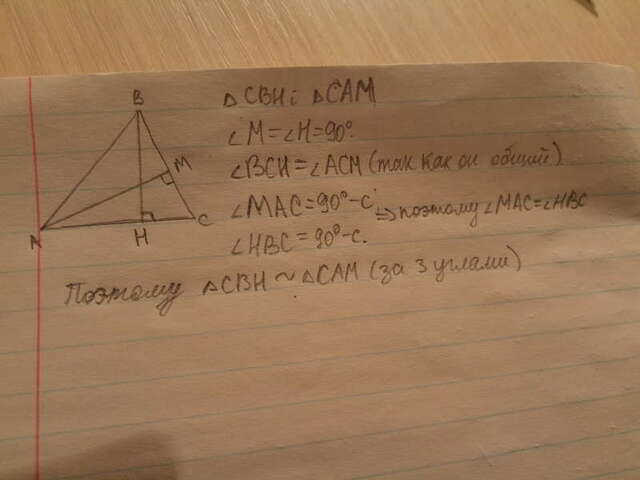 B
M
A
H
C
△CBH i △CAM
∠M=∠H=90°.
∠BCH=∠ACM (так как он общий)
∠MAC=90°-c ⇒ поэтому ∠MAC=∠HBC
∠HBC=90°-c.
Поэтому △CBH ~ △CAM (за 3 углами)